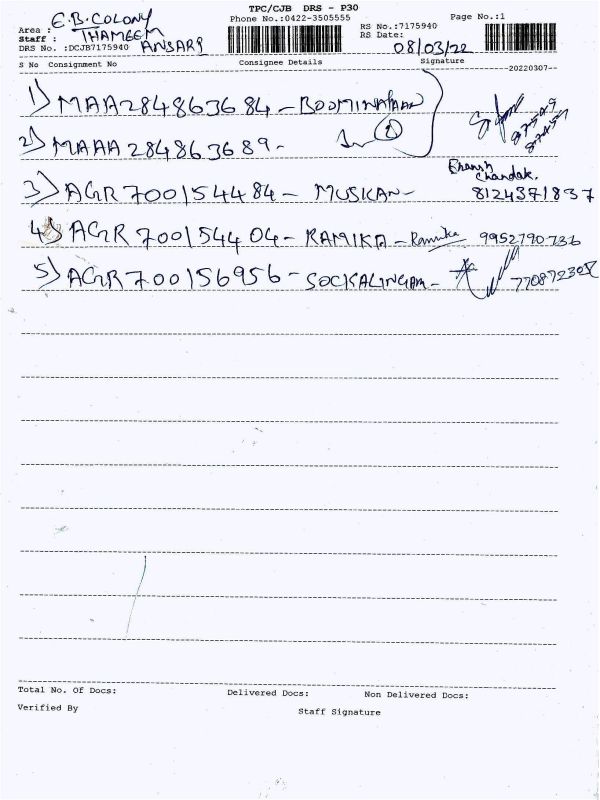 TPC/CJB DRS - P30
Area : E.B. COLONY
Phone No.:0422-3505555
RS No.:7175940
Page No.:1
Staff : THAMEEM ANSARI
RS Date: 08/03/22
DRS No. :DCJB7175940
S No Consignment No Consignee Details Signature
--20220307--
1) MAA284863684 - BOOMINATHAN
2) MAAA 284863689 -
3) AGR 700154484 - MUSKAN - Bhavish Chandak. 8124371837
4) AGR 700154404 - RAMIKA - Ramika 9952790736
5) AGR700156956 - SOCKALINGAM -
Total No. Of Docs: Delivered Docs: Non Delivered Docs:
Verified By Staff Signature